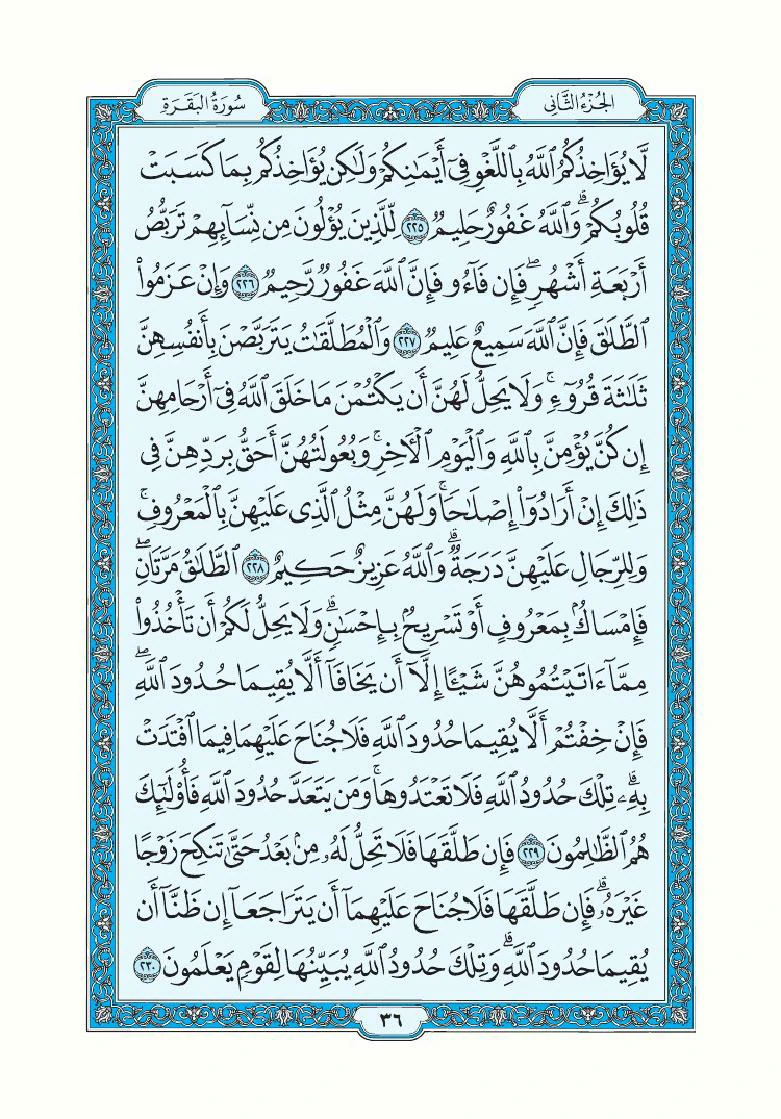 الجُزْءُ الثَّانِي
سُورَةُ البَقَرَةِ
لَّا يُؤَاخِذُكُمُ ٱللَّهُ بِٱللَّغْوِ فِىٓ أَيْمَـٰنِكُمْ وَلَـٰكِن يُؤَاخِذُكُم بِمَا كَسَبَتْ
قُلُوبُكُمْ ۗ وَٱللَّهُ غَفُورٌ حَلِيمٌ ﴿٢٢٥﴾ لِّلَّذِينَ يُؤْلُونَ مِن نِّسَآئِهِمْ تَرَبُّصُ
أَرْبَعَةِ أَشْهُرٍ ۖ فَإِن فَآءُو فَإِنَّ ٱللَّهَ غَفُورٌ رَّحِيمٌ ﴿٢٢٦﴾ وَإِنْ عَزَمُوا۟
ٱلطَّلَـٰقَ فَإِنَّ ٱللَّهَ سَمِيعٌ عَلِيمٌ ﴿٢٢٧﴾ وَٱلْمُطَلَّقَـٰتُ يَتَرَبَّصْنَ بِأَنفُسِهِنَّ
ثَلَـٰثَةَ قُرُوٓءٍ ۚ وَلَا يَحِلُّ لَهُنَّ أَن يَكْتُمْنَ مَا خَلَقَ ٱللَّهُ فِىٓ أَرْحَامِهِنَّ
إِن كُنَّ يُؤْمِنَّ بِٱللَّهِ وَٱلْيَوْمِ ٱلْـَٔاخِرِ ۚ وَبُعُولَتُهُنَّ أَحَقُّ بِرَدِّهِنَّ فِى
ذَٰلِكَ إِنْ أَرَادُوٓا۟ إِصْلَـٰحًا ۚ وَلَهُنَّ مِثْلُ ٱلَّذِى عَلَيْهِنَّ بِٱلْمَعْرُوفِ ۚ
وَلِلرِّجَالِ عَلَيْهِنَّ دَرَجَةٌ ۗ وَٱللَّهُ عَزِيزٌ حَكِيمٌ ﴿٢٢٨﴾ ٱلطَّلَـٰقُ مَرَّتَانِ ۖ
فَإِمْسَاكٌۢ بِمَعْرُوفٍ أَوْ تَسْرِيحٌۢ بِإِحْسَـٰنٍ ۗ وَلَا يَحِلُّ لَكُمْ أَن تَأْخُذُوا۟
مِمَّآ ءَاتَيْتُمُوهُنَّ شَيْـًٔا إِلَّآ أَن يَخَافَآ أَلَّا يُقِيمَا حُدُودَ ٱللَّهِ ۖ
فَإِنْ خِفْتُمْ أَلَّا يُقِيمَا حُدُودَ ٱللَّهِ فَلَا جُنَاحَ عَلَيْهِمَا فِيمَا ٱفْتَدَتْ
بِهِۦ ۗ تِلْكَ حُدُودُ ٱللَّهِ فَلَا تَعْتَدُوهَا ۚ وَمَن يَتَعَدَّ حُدُودَ ٱللَّهِ فَأُو۟لَـٰٓئِكَ
هُمُ ٱلظَّـٰلِمُونَ ﴿٢٢٩﴾ فَإِن طَلَّقَهَا فَلَا تَحِلُّ لَهُۥ مِنۢ بَعْدُ حَتَّىٰ تَنكِحَ زَوْجًا
غَيْرَهُۥ ۗ فَإِن طَلَّقَهَا فَلَا جُنَاحَ عَلَيْهِمَآ أَن يَتَرَاجَعَآ إِن ظَنَّآ أَن
يُقِيمَا حُدُودَ ٱللَّهِ ۗ وَتِلْكَ حُدُودُ ٱللَّهِ يُبَيِّنُهَا لِقَوْمٍ يَعْلَمُونَ ﴿٢٣٠﴾
٣٦